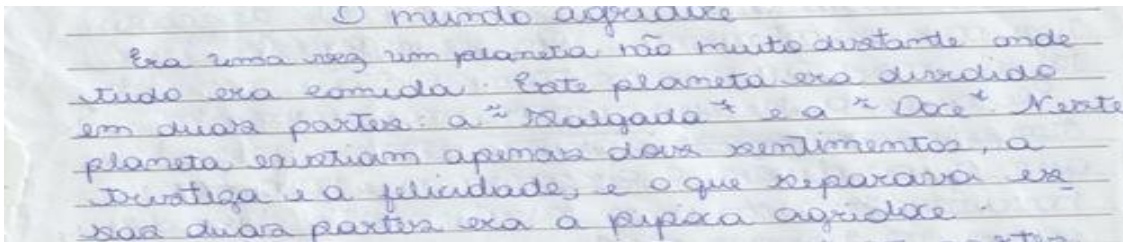 O mundo agridoce
Era uma vez um planeta não muito distante onde
tudo era comida. Este planeta era dividido
em duas partes: a "Salgada" e a "Doce". Neste
planeta existiam apenas dois sentimentos, a
e a felicidade, e o que separava es
sas duas partes era a pipoca agridoce.